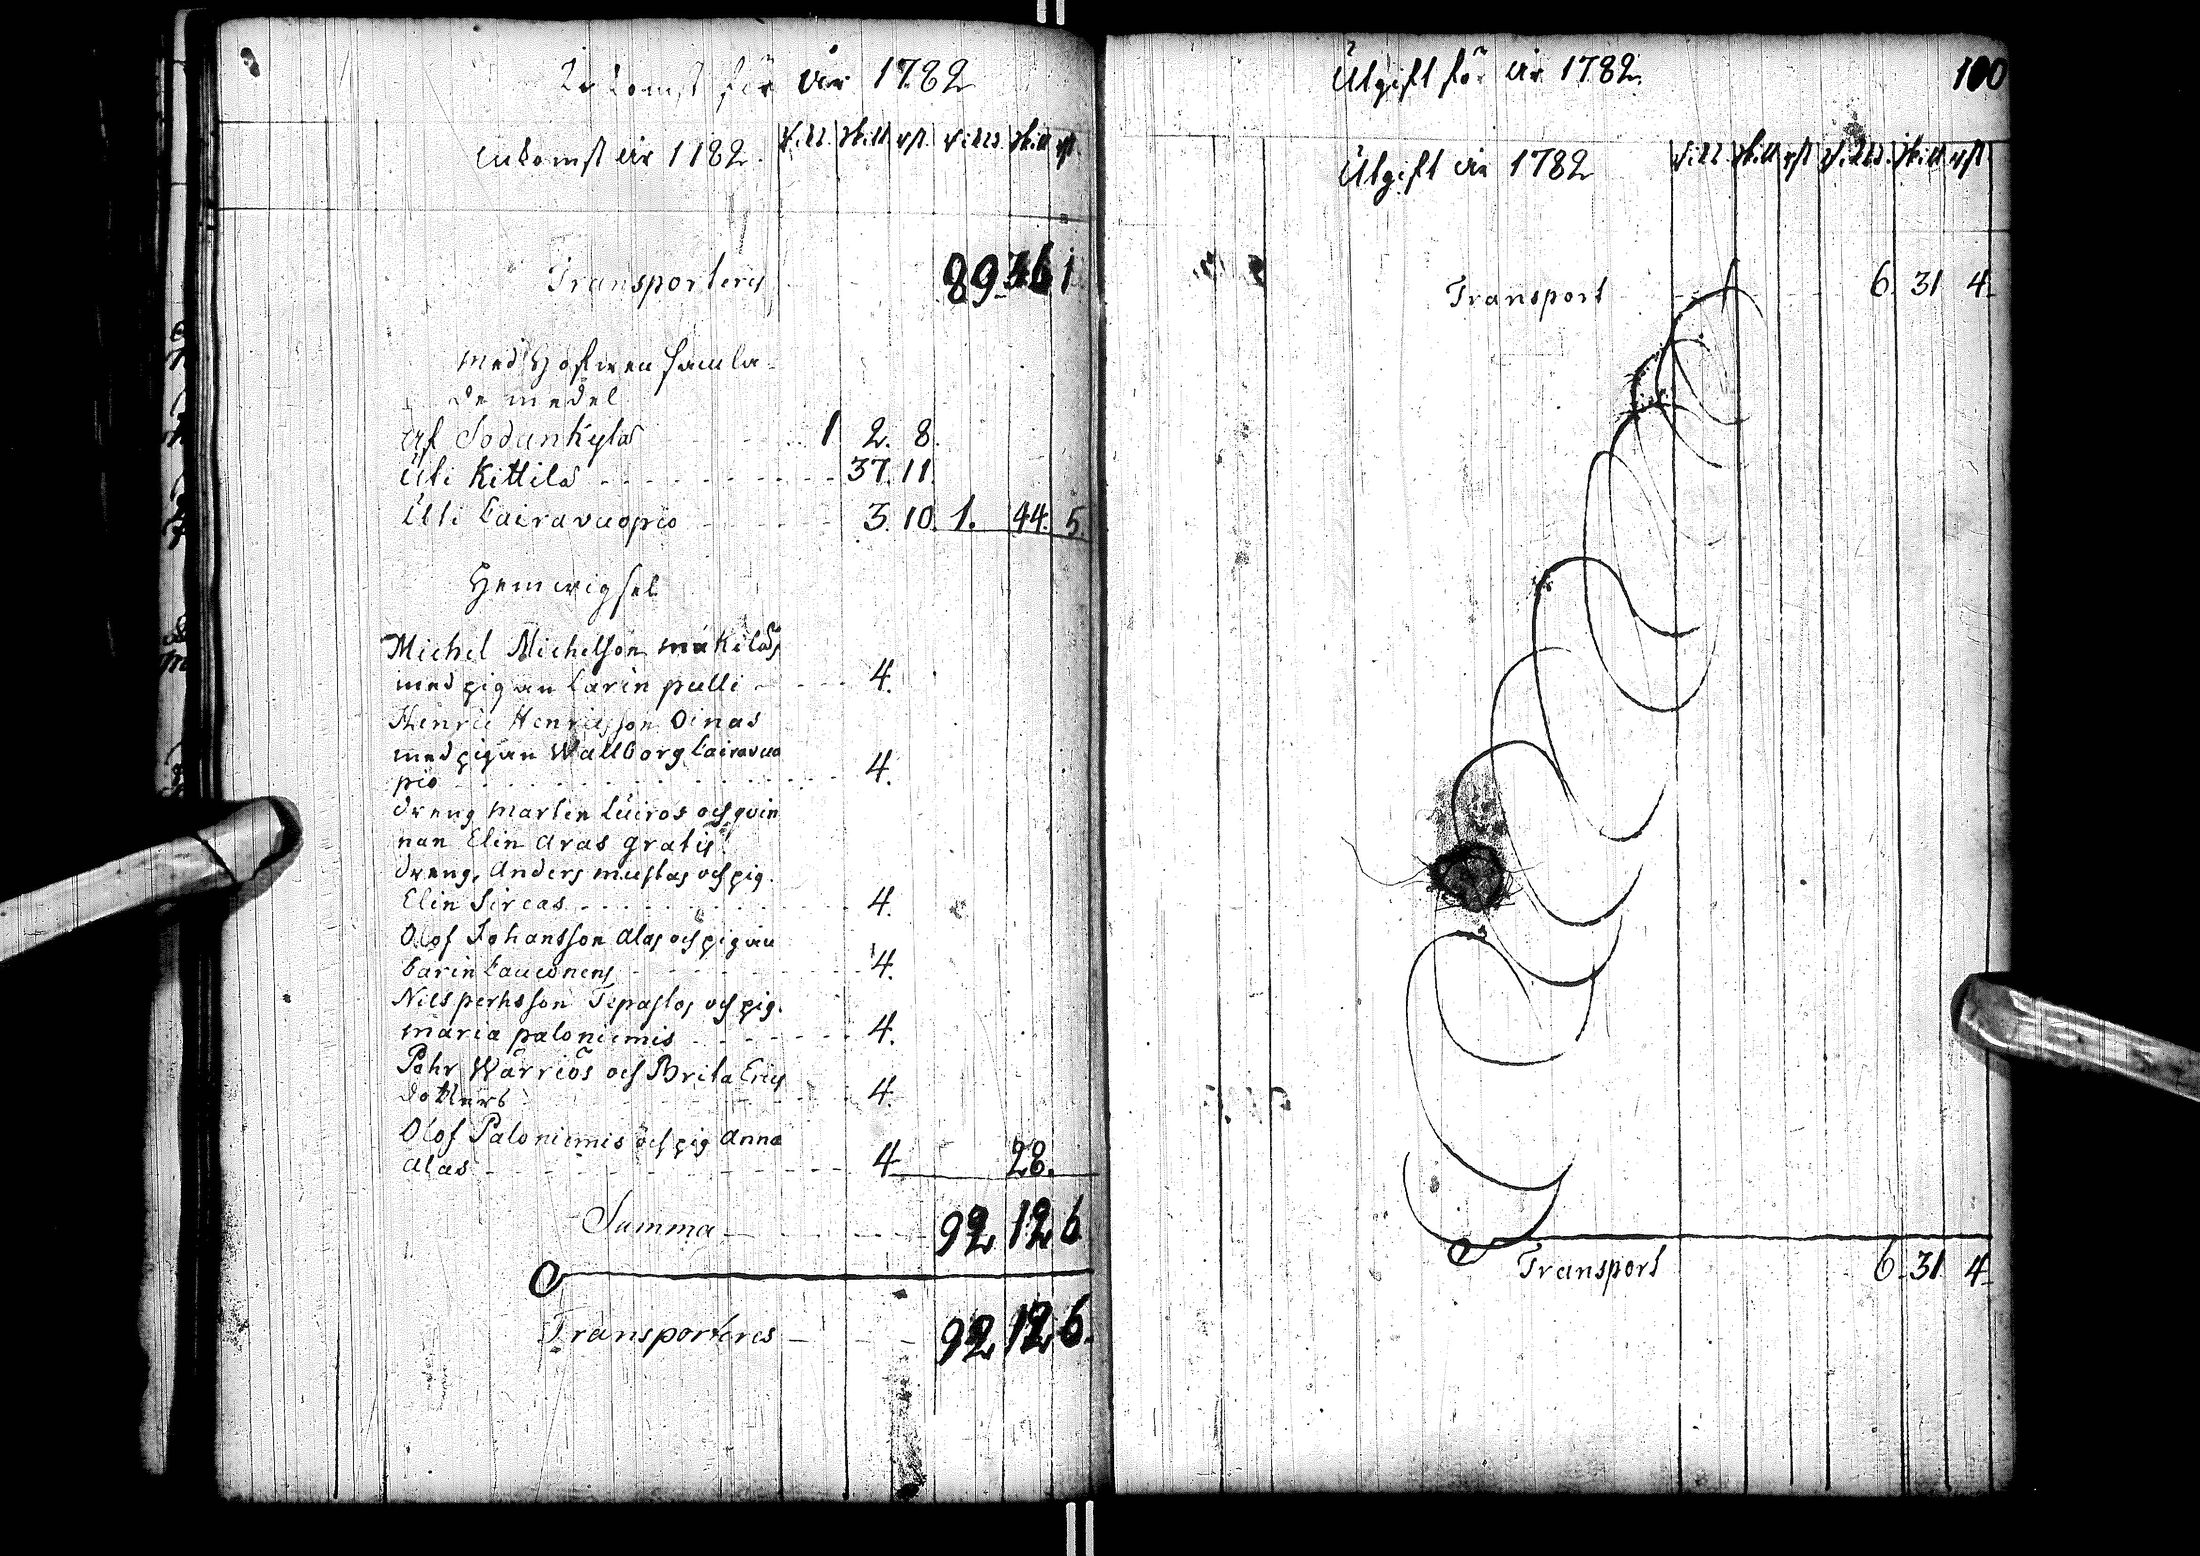 Inkomst för år 1782
inkomst år 1782. Rikd. skill. rst. Riksd. skill rst.
Transporteras 89 36 1
med Hofwen samla-
de medel
af Sodankylä 1 2. 8.
uti Kittilä 37. 11.
uti Cairavuopio 3. 10. 1. 44. 5.
Hemwigsel
Michel Michelsson mäkiläs
med pigan Carin pulli 4.
Henric Henricsson Oinas
med pigan Wallborg Cairavuo
pio 4.
dreng Martin Luiros och qvin
nan Elin Aras gratis
dreng. Anders mustas och pig.
Elin Sircas 4.
Olof Johansson Alas och pigan
Carin Cauconens 4.
Nils perhsson Tepastos och pig.
maria paloniemis 4.
Pehr Wärriös och Brita Erics
dotters 4.
Olof Paloniemis och pig Anna
Alas 4 28.
Summa 92 12 6
Transporteres 92 12 6.
Utgift för år 1782. 100
Utgift år 1782 Rikd. skill rst Riksd. skill rst.
Transport 6. 31 4.
Transport 6. 31 4.